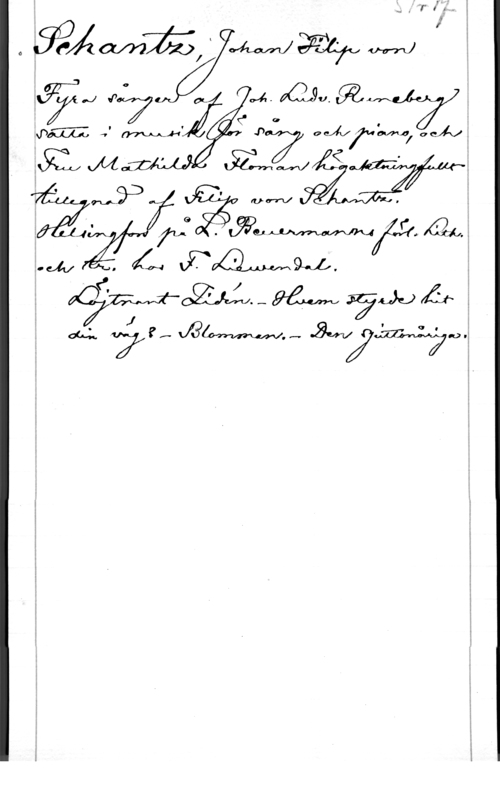 Schantz, Johan Filip von
Fyra sånger af Joh. Ludv. Runeberg
satta i musik för sång och piano, och
Fru Mathilda Floman högaktningsfullt
tillegnad af Filip von Schantz.
Helsingfors på L. Beuermanns förl. Lith.
och tr. hos F. Liewendal.
Löjtnant Zidén. – Hvem styrde hit
din väg? – Blomman. – Den sjuttonåriga.